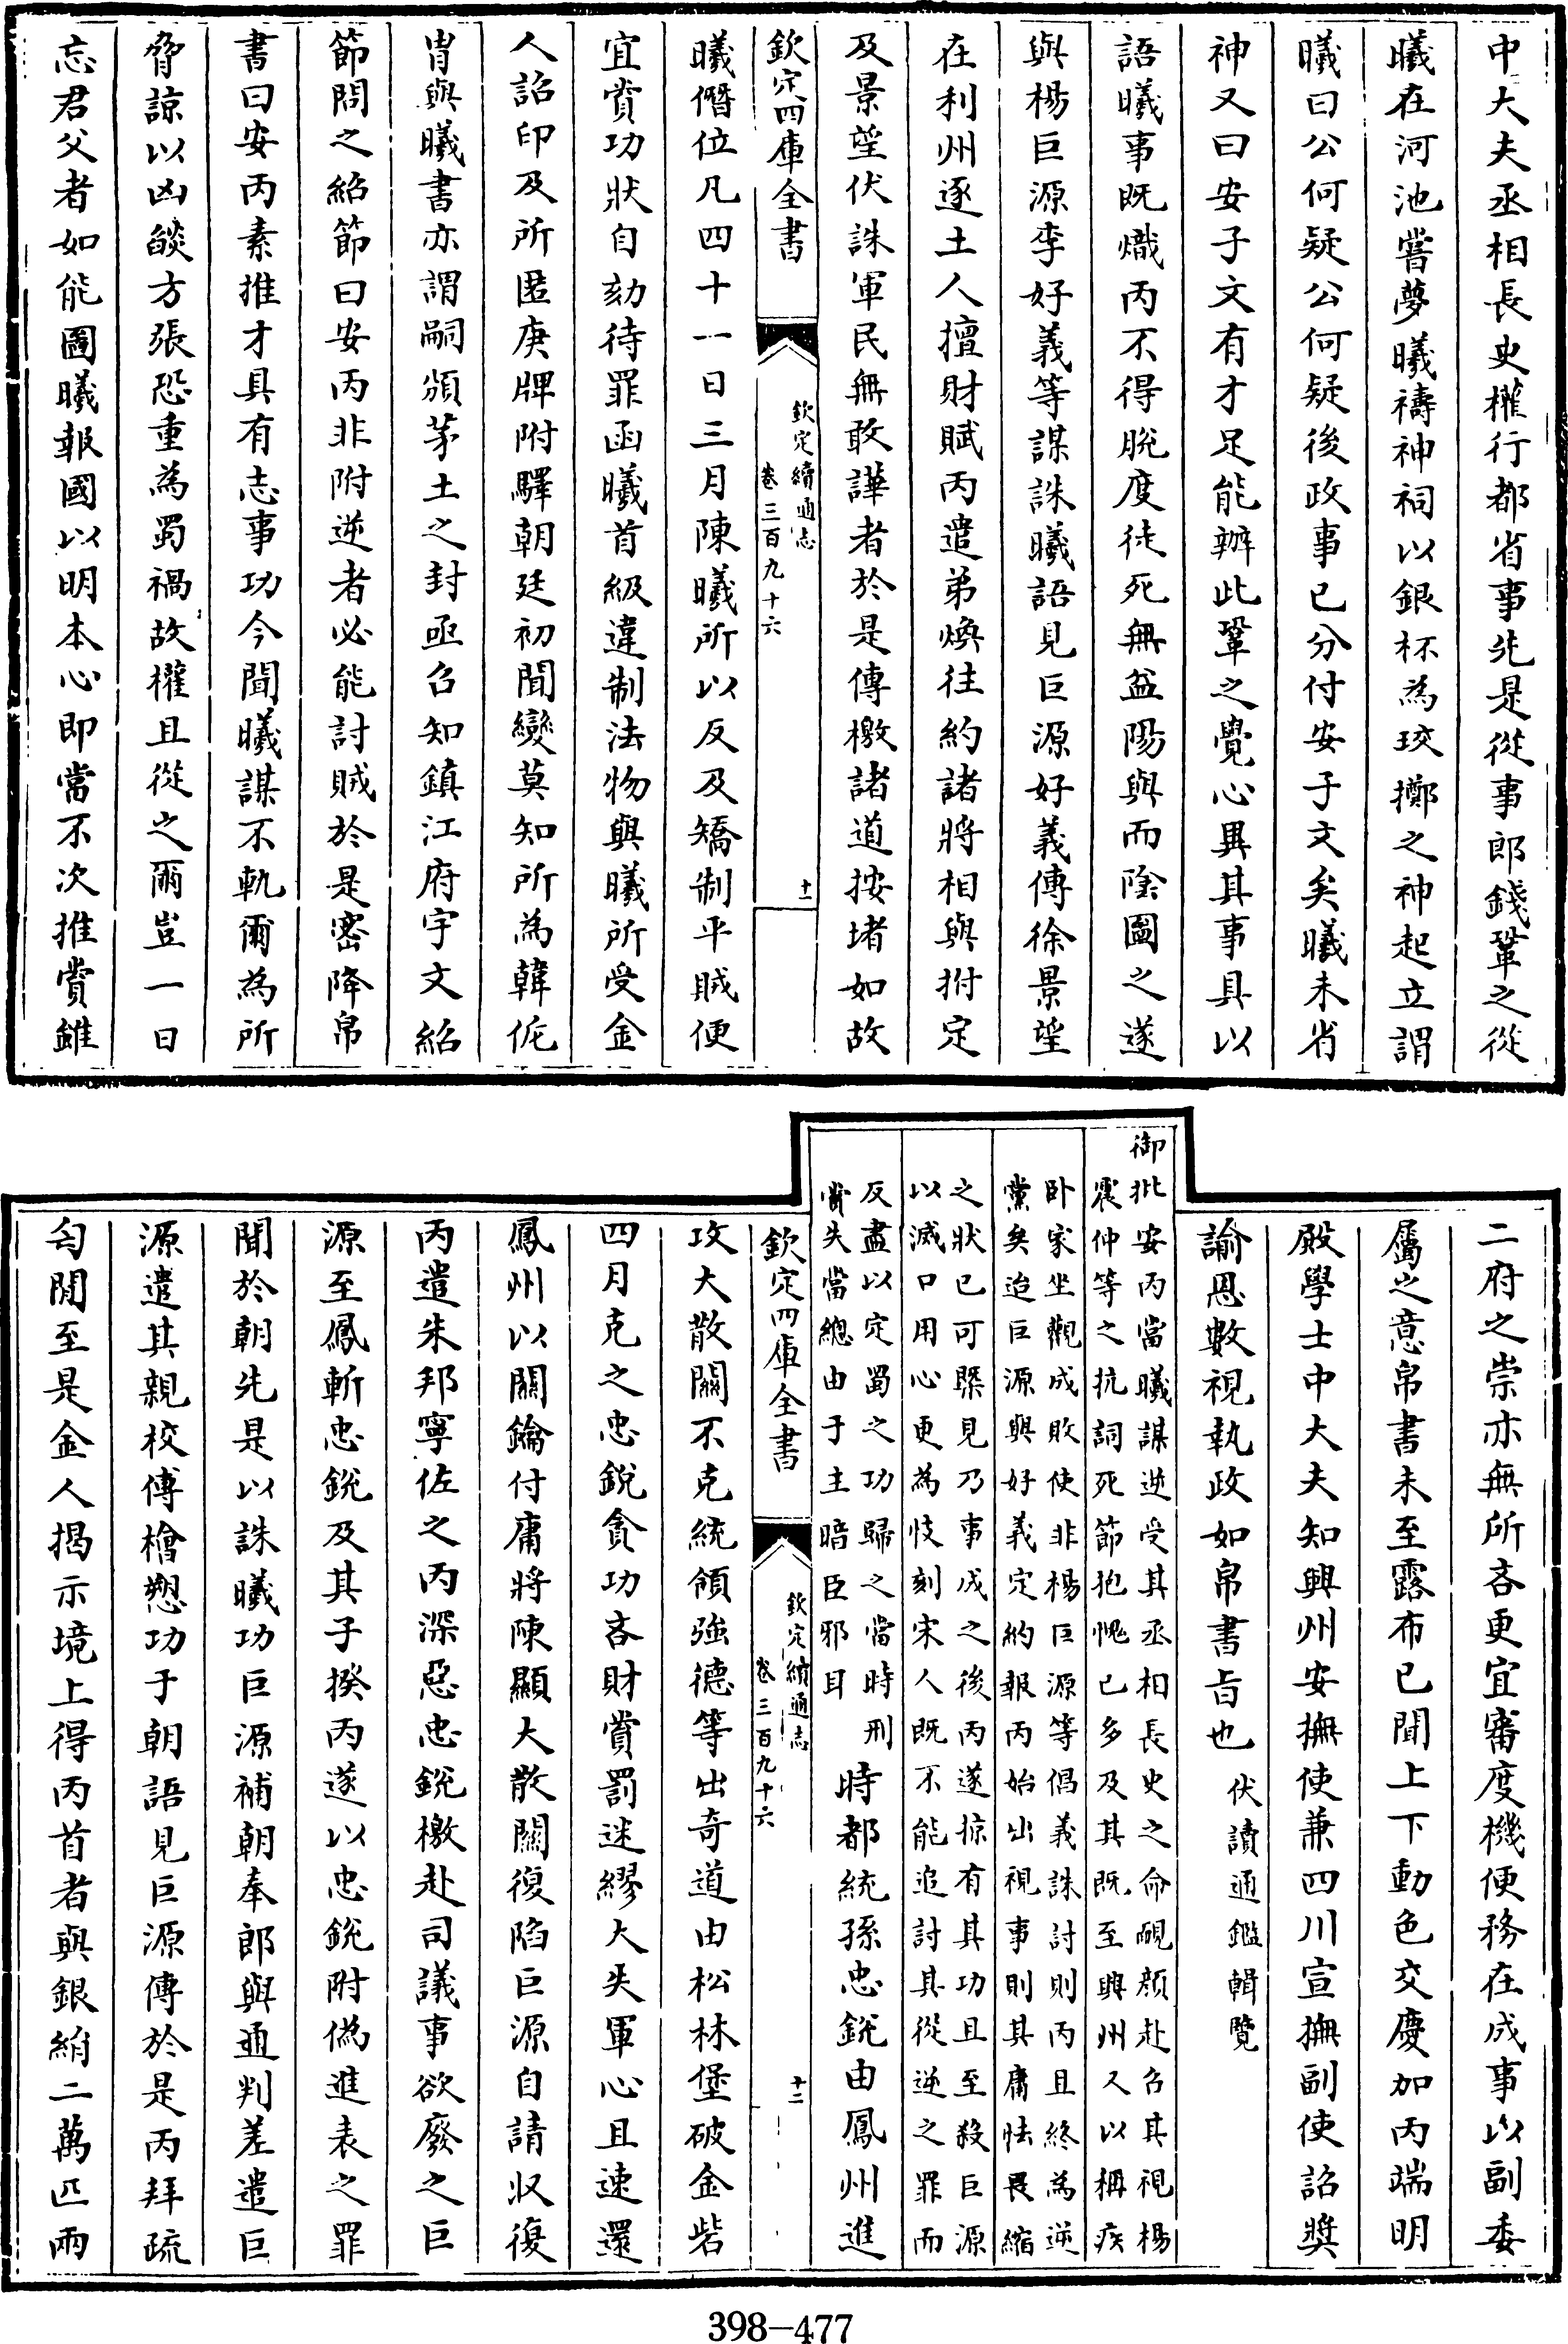 中大夫丞相長史權行都省事先是從事郎錢鞏之從
曦在河池嘗夢曦禱神祠以銀杯為珓擲之神起立謂
曦曰公何疑公何疑後政事已分付安子文矣曦未省
神又曰安子文有才足能辦此鞏之覺心異其事具以
語曦事既熾丙不得脫度徒死無益陽與而陰圖之遂
與楊巨源李好義等謀誅曦語見巨源好義傳徐景望
在利州逐土人擅財賦丙遣弟煥往約諸將相與拊定
及景望伏誅軍民無敢譁者於是傳檄諸道按堵如故
欽定四庫全書
欽定續通志
卷三百九十六
十一
曦僭位凡四十一日三月陳曦所以反及矯制平賊便
宜賞功狀自劾待罪函曦首級違制法物與曦所受金
人詔印及所匿庚牌附驛朝廷初聞變莫知所為韓侂
胄與曦書亦謂嗣頒茅土之封亟召知鎮江府宇文紹
節問之紹節曰安丙非附逆者必能討賊於是密降帛
書曰安丙素推才具有志事功今聞曦謀不軌爾為所
脅諒以凶燄方張恐重為蜀禍故權且從之爾豈一日
忘君父者如能圖曦報國以明本心即當不次推賞雖
二府之崇亦無所吝更宜審度機便務在成事以副委
屬之意帛書未至露布已聞上下動色交慶加丙端明
殿學士中大夫知興州安撫使兼四川宣撫副使詔獎
諭恩數視執政如帛書旨也 伏讀通鑑輯覽
御批安丙當曦謀逆受其丞相長史之命靦顏赴召其視楊
震仲等之抗詞死節抱愧已多及其既至興州又以稱疾
卧家坐觀成敗使非楊巨源等倡義誅討則丙且終為逆
黨矣迨巨源與好義定約報丙始出視事則其庸怯畏縮
之狀已可槩見乃事成之後丙遂掠有其功且至殺巨源
以滅口用心更為忮刻宋人既不能追討其從逆之罪而
反盡以定蜀之功歸之當時刑
賞失當總由于主暗臣邪耳
時都統孫忠銳由鳳州進
欽定四庫全書
欽定續通志
卷三百九十六
十二
攻大散關不克統領強德等出奇道由松林堡破金砦
四月克之忠銳貪功吝財賞罰迷繆大失軍心且速還
鳳州以關鑰付庸將陳顯大散關復陷巨源自請收復
丙遣朱邦寧佐之丙深惡忠銳檄赴司議事欲廢之巨
源至鳳斬忠銳及其子揆丙遂以忠銳附偽進表之罪
聞於朝先是以誅曦功巨源補朝奉郎與通判差遣巨
源遣其親校傅檜愬功于朝語見巨源傳於是丙拜疏
匄閒至是金人揭示境上得丙首者與銀絹二萬匹兩
398-477